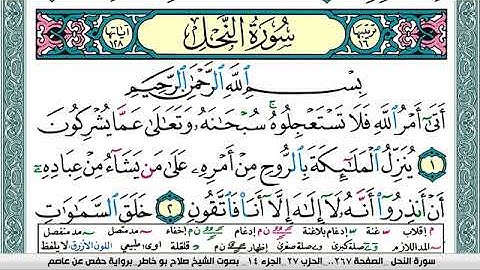 ترتيبها ١٦ سُورَةُ النَّحْلِ آياتها ١٢٨
بِسْمِ اللَّهِ الرَّحْمَٰنِ الرَّحِيمِ
أَتَىٰ أَمْرُ اللَّهِ فَلَا تَسْتَعْجِلُوهُ سُبْحَانَهُ وَتَعَالَىٰ عَمَّا يُشْرِكُونَ
١ يُنَزِّلُ الْمَلَائِكَةَ بِالرُّوحِ مِنْ أَمْرِهِ عَلَىٰ مَن يَشَاءُ مِنْ عِبَادِهِ
أَنْ أَنذِرُوا أَنَّهُ لَا إِلَٰهَ إِلَّا أَنَا فَاتَّقُونِ ٢ خَلَقَ السَّمَاوَاتِ
م إقلاب غنة إدغام بلاغنة إدغام بغنة إخفاء مد متصل مد منفصل
المد اللازم صلة كبرى صلة صغرى إظهار قلقلة طبيعي اللون الأزرق لا يلفظ
سورة النحل الصفحة ٢٦٧.. الحزب ٢٧ الجزء ١٤_ بصوت الشيخ صلاح بو خاطر، برواية حفص عن عاصم